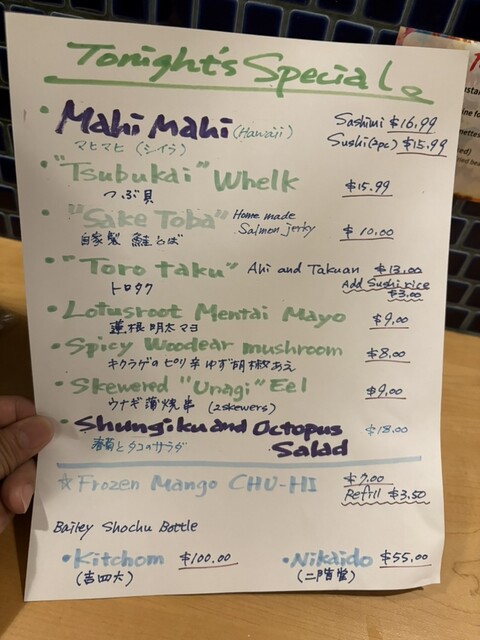 Tonight's Special
• Mahi Mahi (Hawaii) Sashimi $16.99
マヒマヒ (シイラ) Sushi(2pc) $15.99
• "Tsubukai" Whelk $15.99
つぶ貝
• "Sake Toba" Home made Salmon jerky $10.00
自家製 鮭とば
• "Toro taku" Ahi and Takuan $13.00
トロタク Add Sushi rice $3.00
• Lotusroot Mentai Mayo $9.00
蓮根明太マヨ
• Spicy Woodear mushroom $8.00
キクラゲのピリ辛ゆず胡椒あえ
• Skewered "Unagi" Eel $9.00
ウナギ蒲焼串 (2skewers)
• Shungiku and Octopus Salad $18.00
春菊とタコのサラダ
☆ Frozen Mango CHU-HI $7.00
Refill $3.50
Bailey Shochu Bottle
• Kitchom $100.00 • Nikaido $55.00
(吉四六) (二階堂)